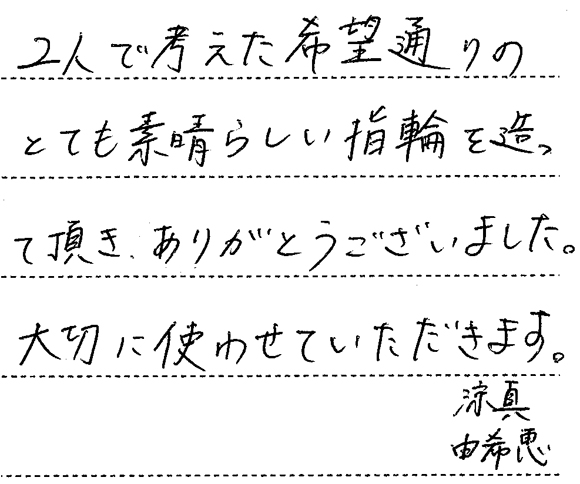 2人で考えた希望通りの
とても素晴らしい指輪を造っ
て頂き、ありがとうございました。
大切に使わせていただきます。
涼真
由希恵